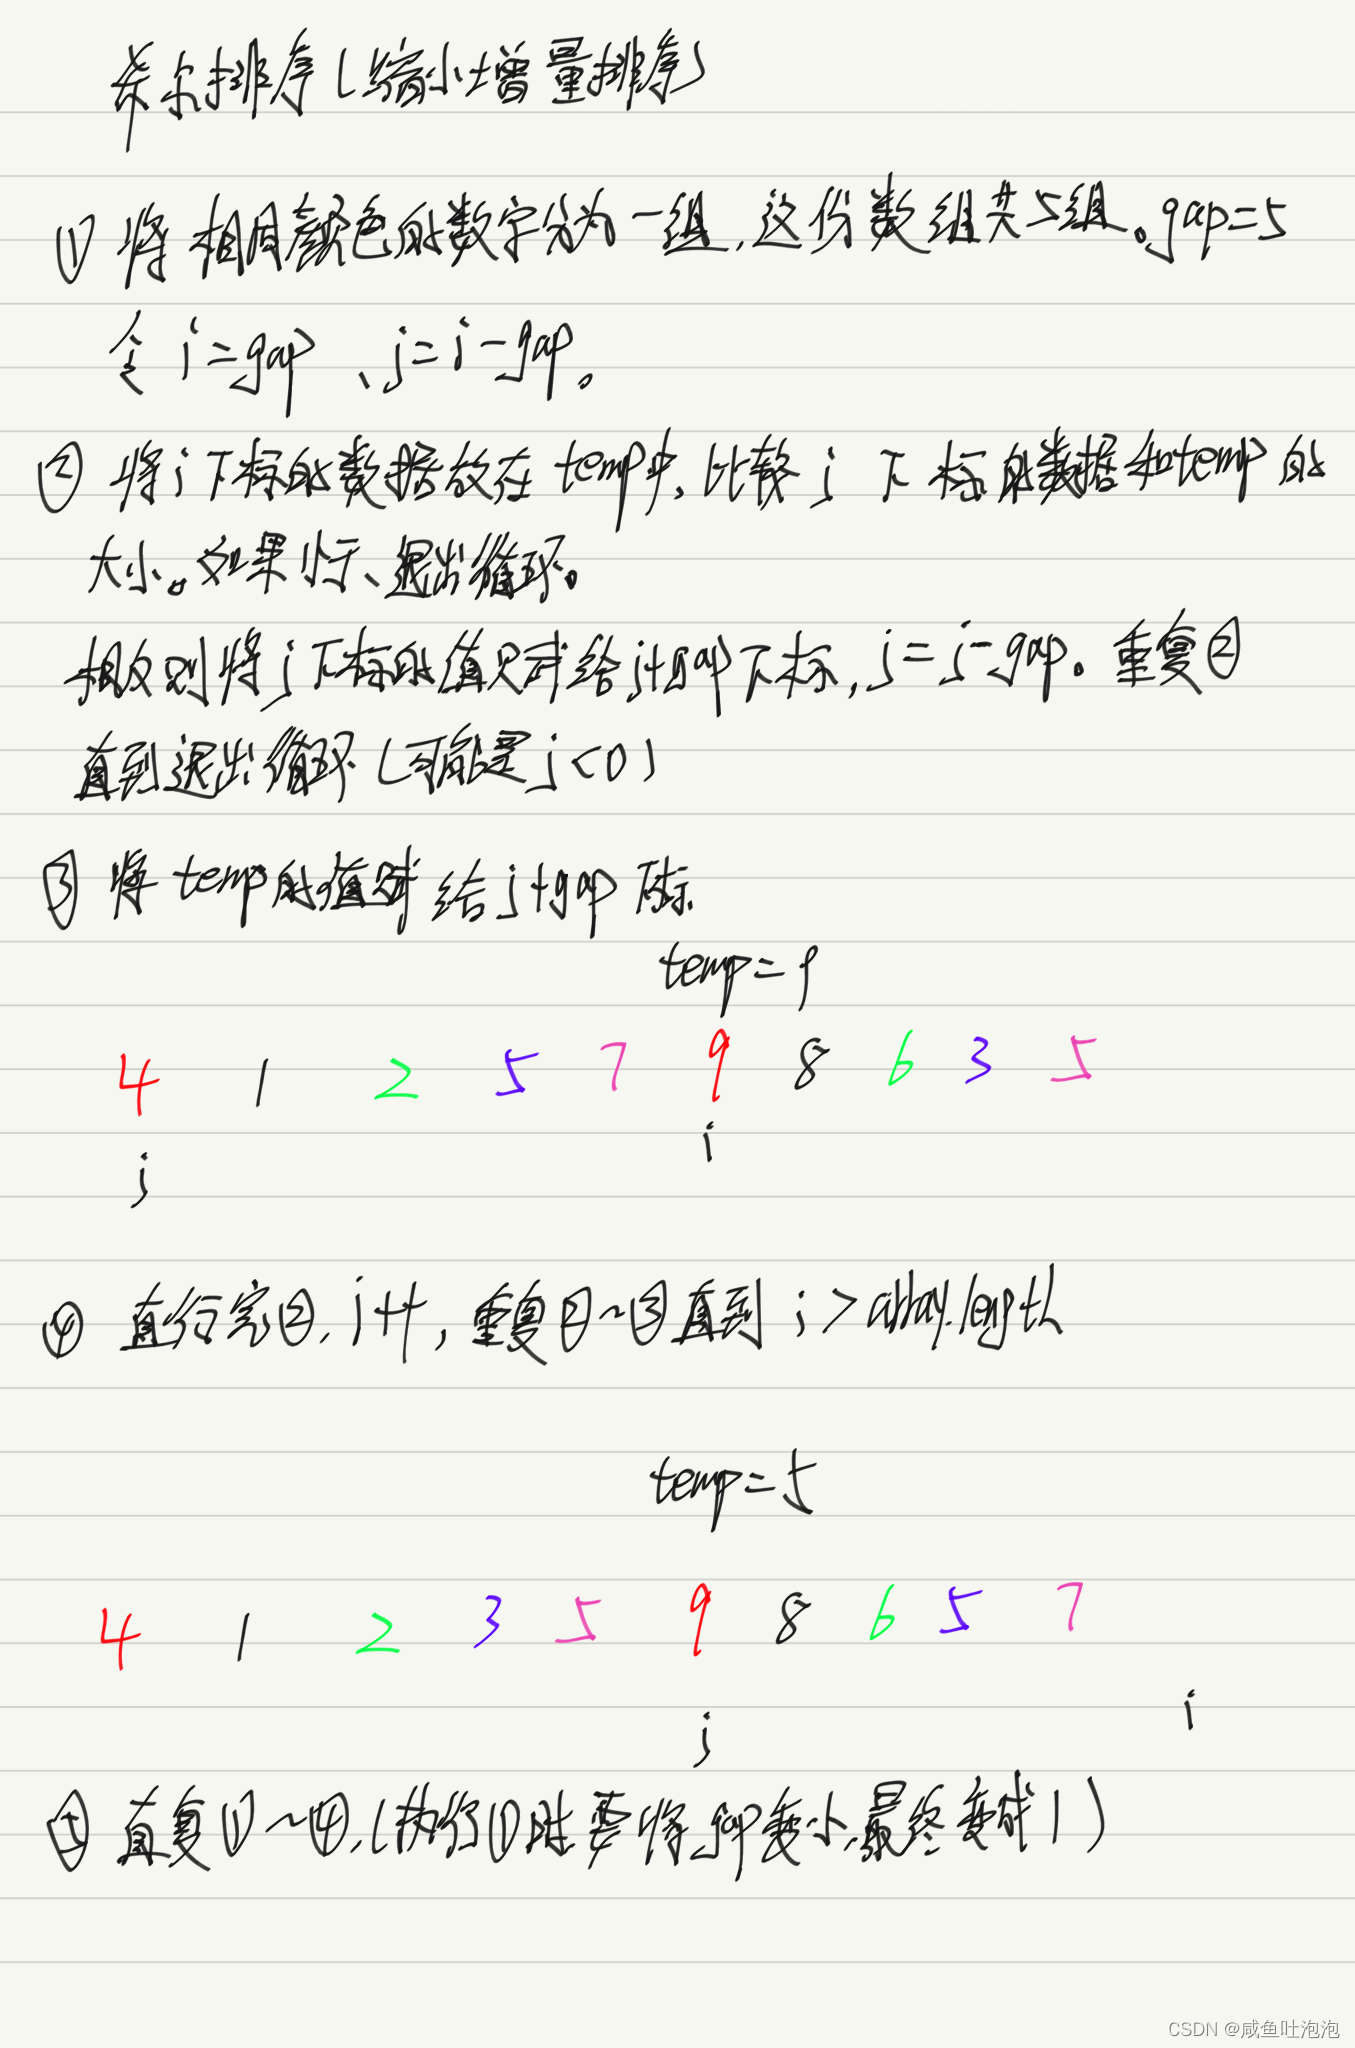 希尔排序(缩小增量排序)
① 将相同颜色的数字分为一组,这份数组共5组。gap=5
令 i=gap、j=i-gap。
② 将i下标的数据放在temp中,比较j下标的数据和temp的
大小。如果小于、退出循环。
相反则将j下标的值赋给j+gap下标,j=j-gap。重复②
直到退出循环(可能是j<0)
③ 将temp的值赋给j+gap下标.
temp=9
4 1 2 5 7 9 8 6 3 5
i
j
④ 直行完②,i++,重复②~③直到i>array.length
temp=5
4 1 2 3 5 9 8 6 5 7
i
j
⑤ 直复①~④,(执行①时要将gap变小,最终变成1)
CSDN @咸鱼吐泡泡